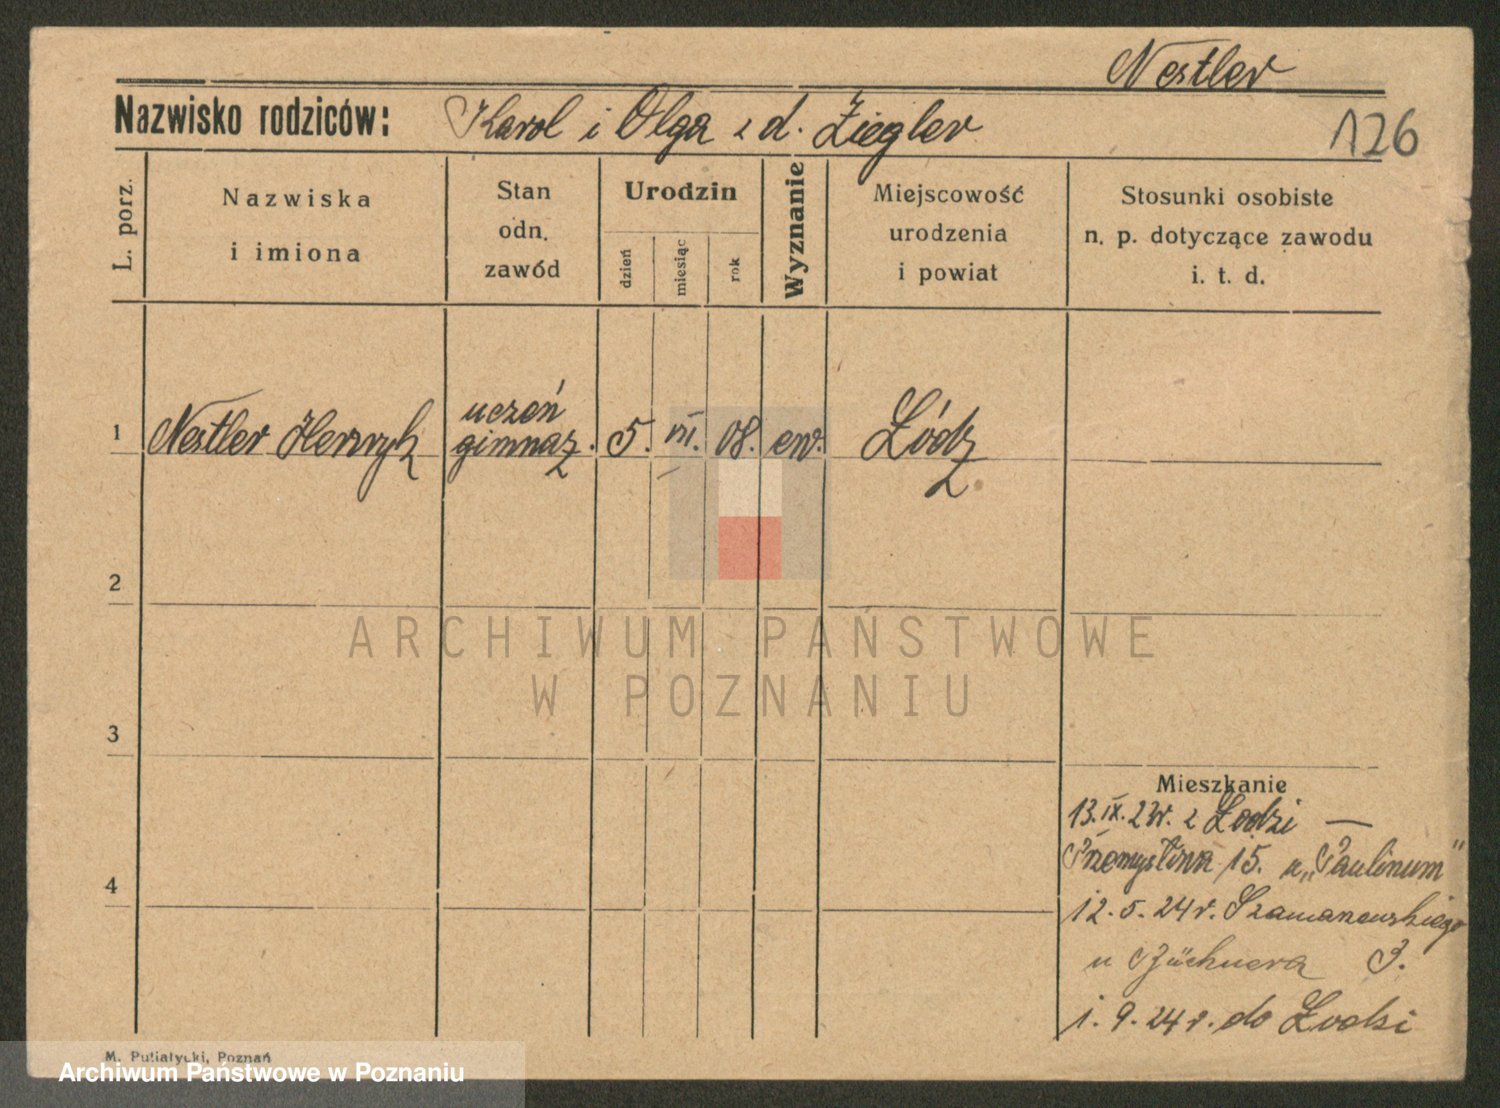 Nestler
Nazwisko rodziców: Karol i Olga z d. Ziegler
126
L. porz.
Nazwiska
i imiona
Stan
odn.
zawód
Urodzin
dzień
miesiąc
rok
Wyznanie
Miejscowość
urodzenia
i powiat
Stosunki osobiste
n. p. dotyczące zawodu
i. t. d.
1 Nestler Henryk uczeń gimnaz. 5. VII. 08. ew. Łódz
2
3
4
Mieszkanie
13.IX.23r. z Łodzi —
Przemysłowa 15. u „Paulinum"
12.5.24r. Szamarzewskiego
u Büchnera 3.
1.9.24r. do Łodzi
M. Putiatycki, Poznań
ARCHIWUM PAŃSTWOWE
W POZNANIU
Archiwum Państwowe w Poznaniu